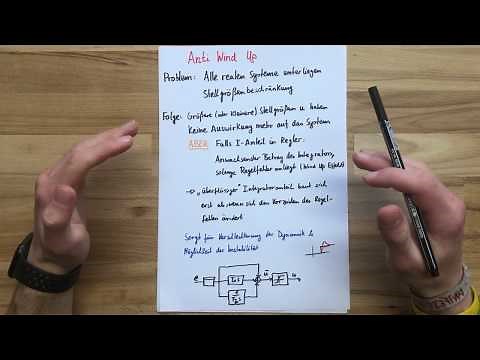 Anti Wind Up
Problem: Alle realen Systeme unterliegen
Stellgrößenbeschränkung
Folge: Größere (oder kleinere) Stellgrößen u haben
keine Auswirkung mehr auf das System
ABER Falls I-Anteil in Regler:
Anwachsender Betrag des Integrators,
solange Regelfehler anliegt (Wind Up Effekt)
→ "überflüssiger" Integratoranteil baut sich
erst ab wenn sich das Vorzeichen des Regel-
fehlers ändert
Sorgt für Verschlechterung der Dynamik &
Möglichkeit der Instabilität
e
u